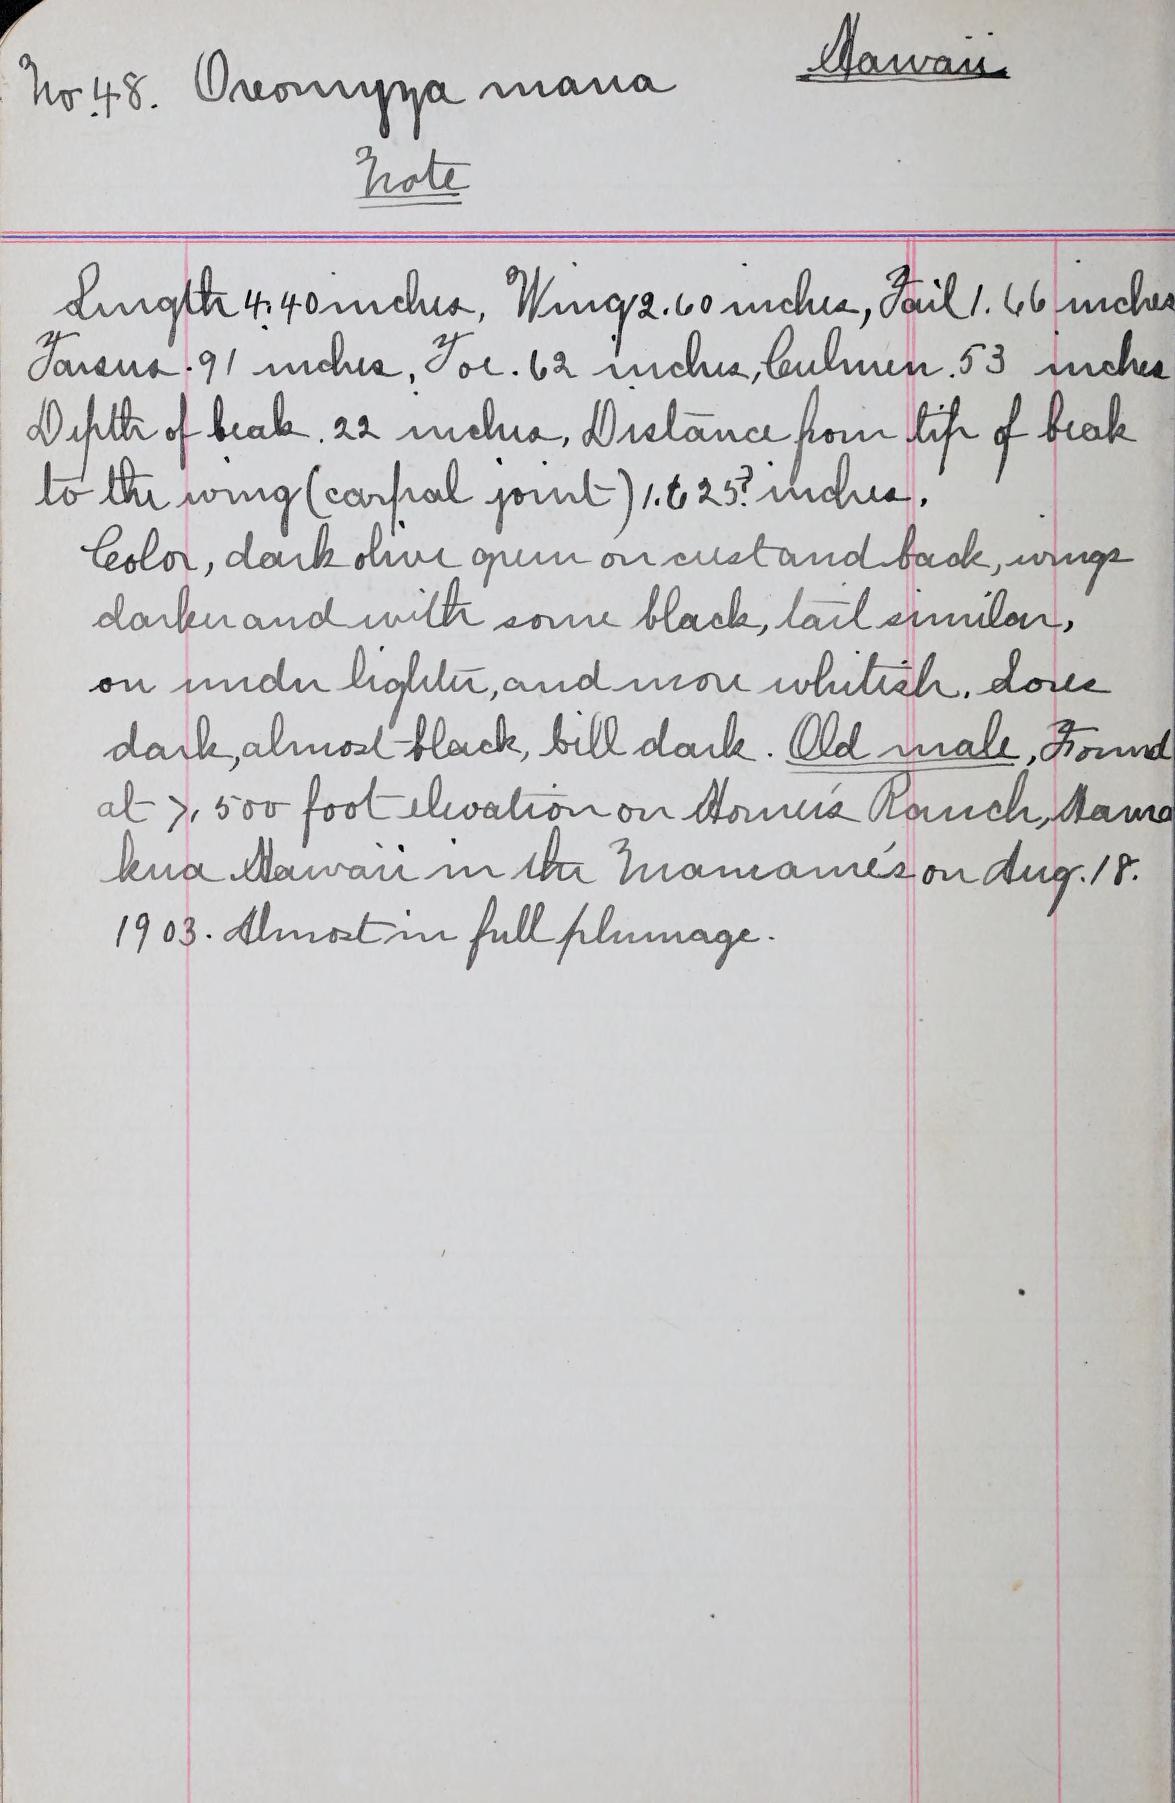 Hawaii
No. 48. Oreomyza mana
Note
Length 4.40 inches, Wing 2.60 inches, Tail 1.66 inches
Tarsus .91 inches, Toe .62 inches, Culmen .53 inches
Depth of beak .22 inches, Distance from tip of beak
to the wing (carpal joint) 1.625? inches.
Color, dark olive green on crest and back, wings
darker and with some black, tail similar,
on under lighter, and more whitish. Lores
dark, almost black, bill dark. Old male, Found
at 7,500 foot elevation on Horner's Ranch, Hama
kua Hawaii in the Mamame's on Aug. 18.
1903. Almost in full plumage.